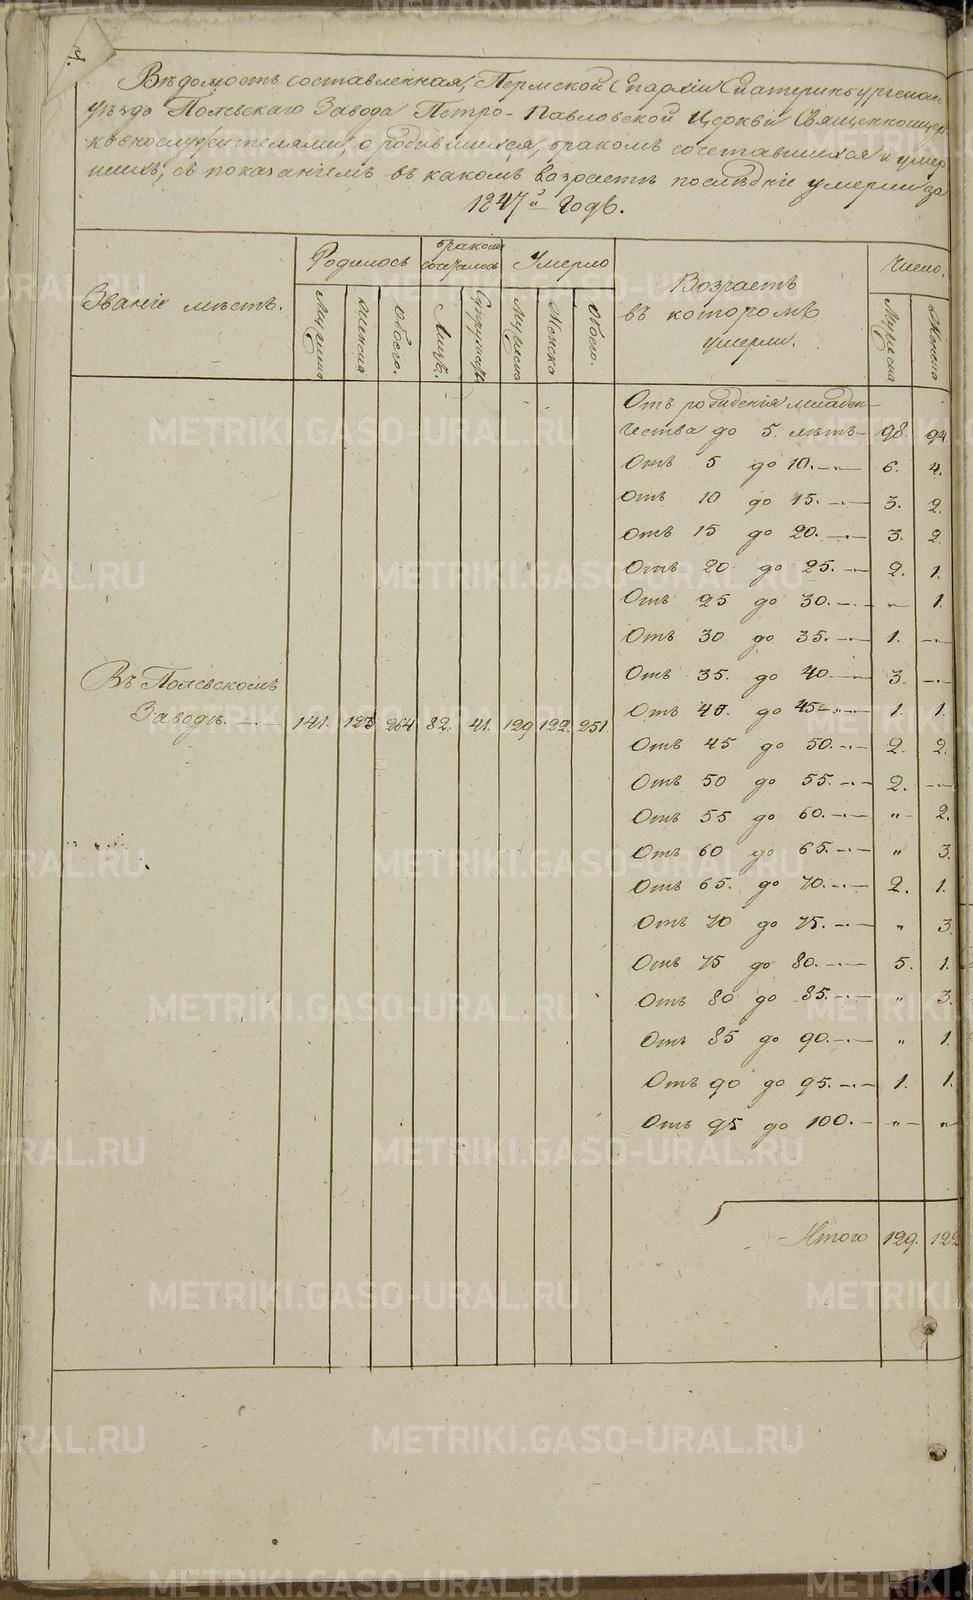 Вѣдомость составленная, Пермской Епархіи Екатеринбургскаго
уѣзда Полевскаго Завода Петро-Павловской Церкви Священноцер-
ковнослужителями, о родившихся, бракомъ сочетавшихся и умер
шихъ, съ показаніемъ въ какомъ возрастѣ послѣдніе умерли за
1847й Годъ.
Званіе мѣстъ.
Родилось
бракомъ сочеталось
Умерло
Возрастъ въ которомъ умерли.
Число.
Мужеска Женска обоего. Лицъ. Супружес Мужеска Женска обоего. Мужеска Женска
Отъ рожденія младен-
чества до 5. лѣтъ- 98. 94.
Отъ 5 до 10. 6. 4.
Отъ 10 до 15. 3. 2.
Отъ 15 до 20. 3. 2.
Отъ 20 до 25. 2. 1.
Отъ 25 до 30. „ 1.
Отъ 30 до 35. 1. —
Отъ 35. до 40. 3. —
Въ Полевскомъ
Заводѣ. 141. 123 264 82. 41. 129 122. 251.
Отъ 40. до 45. 1. 1.
Отъ 45 до 50. 2. 2.
Отъ 50 до 55. 2. —
Отъ 55 до 60. „ 2.
Отъ 60 до 65. „ 3.
Отъ 65. до 70. 2. 1.
Отъ 70 до 75. „ 3.
Отъ 75 до 80. 5. 1.
Отъ 80 до 85. „ 3.
Отъ 85 до 90. „ 1.
Отъ 90 до 95. 1. 1.
Отъ 95 до 100. „ „
Итого 129. 122
METRIKI.GASO-URAL.RU